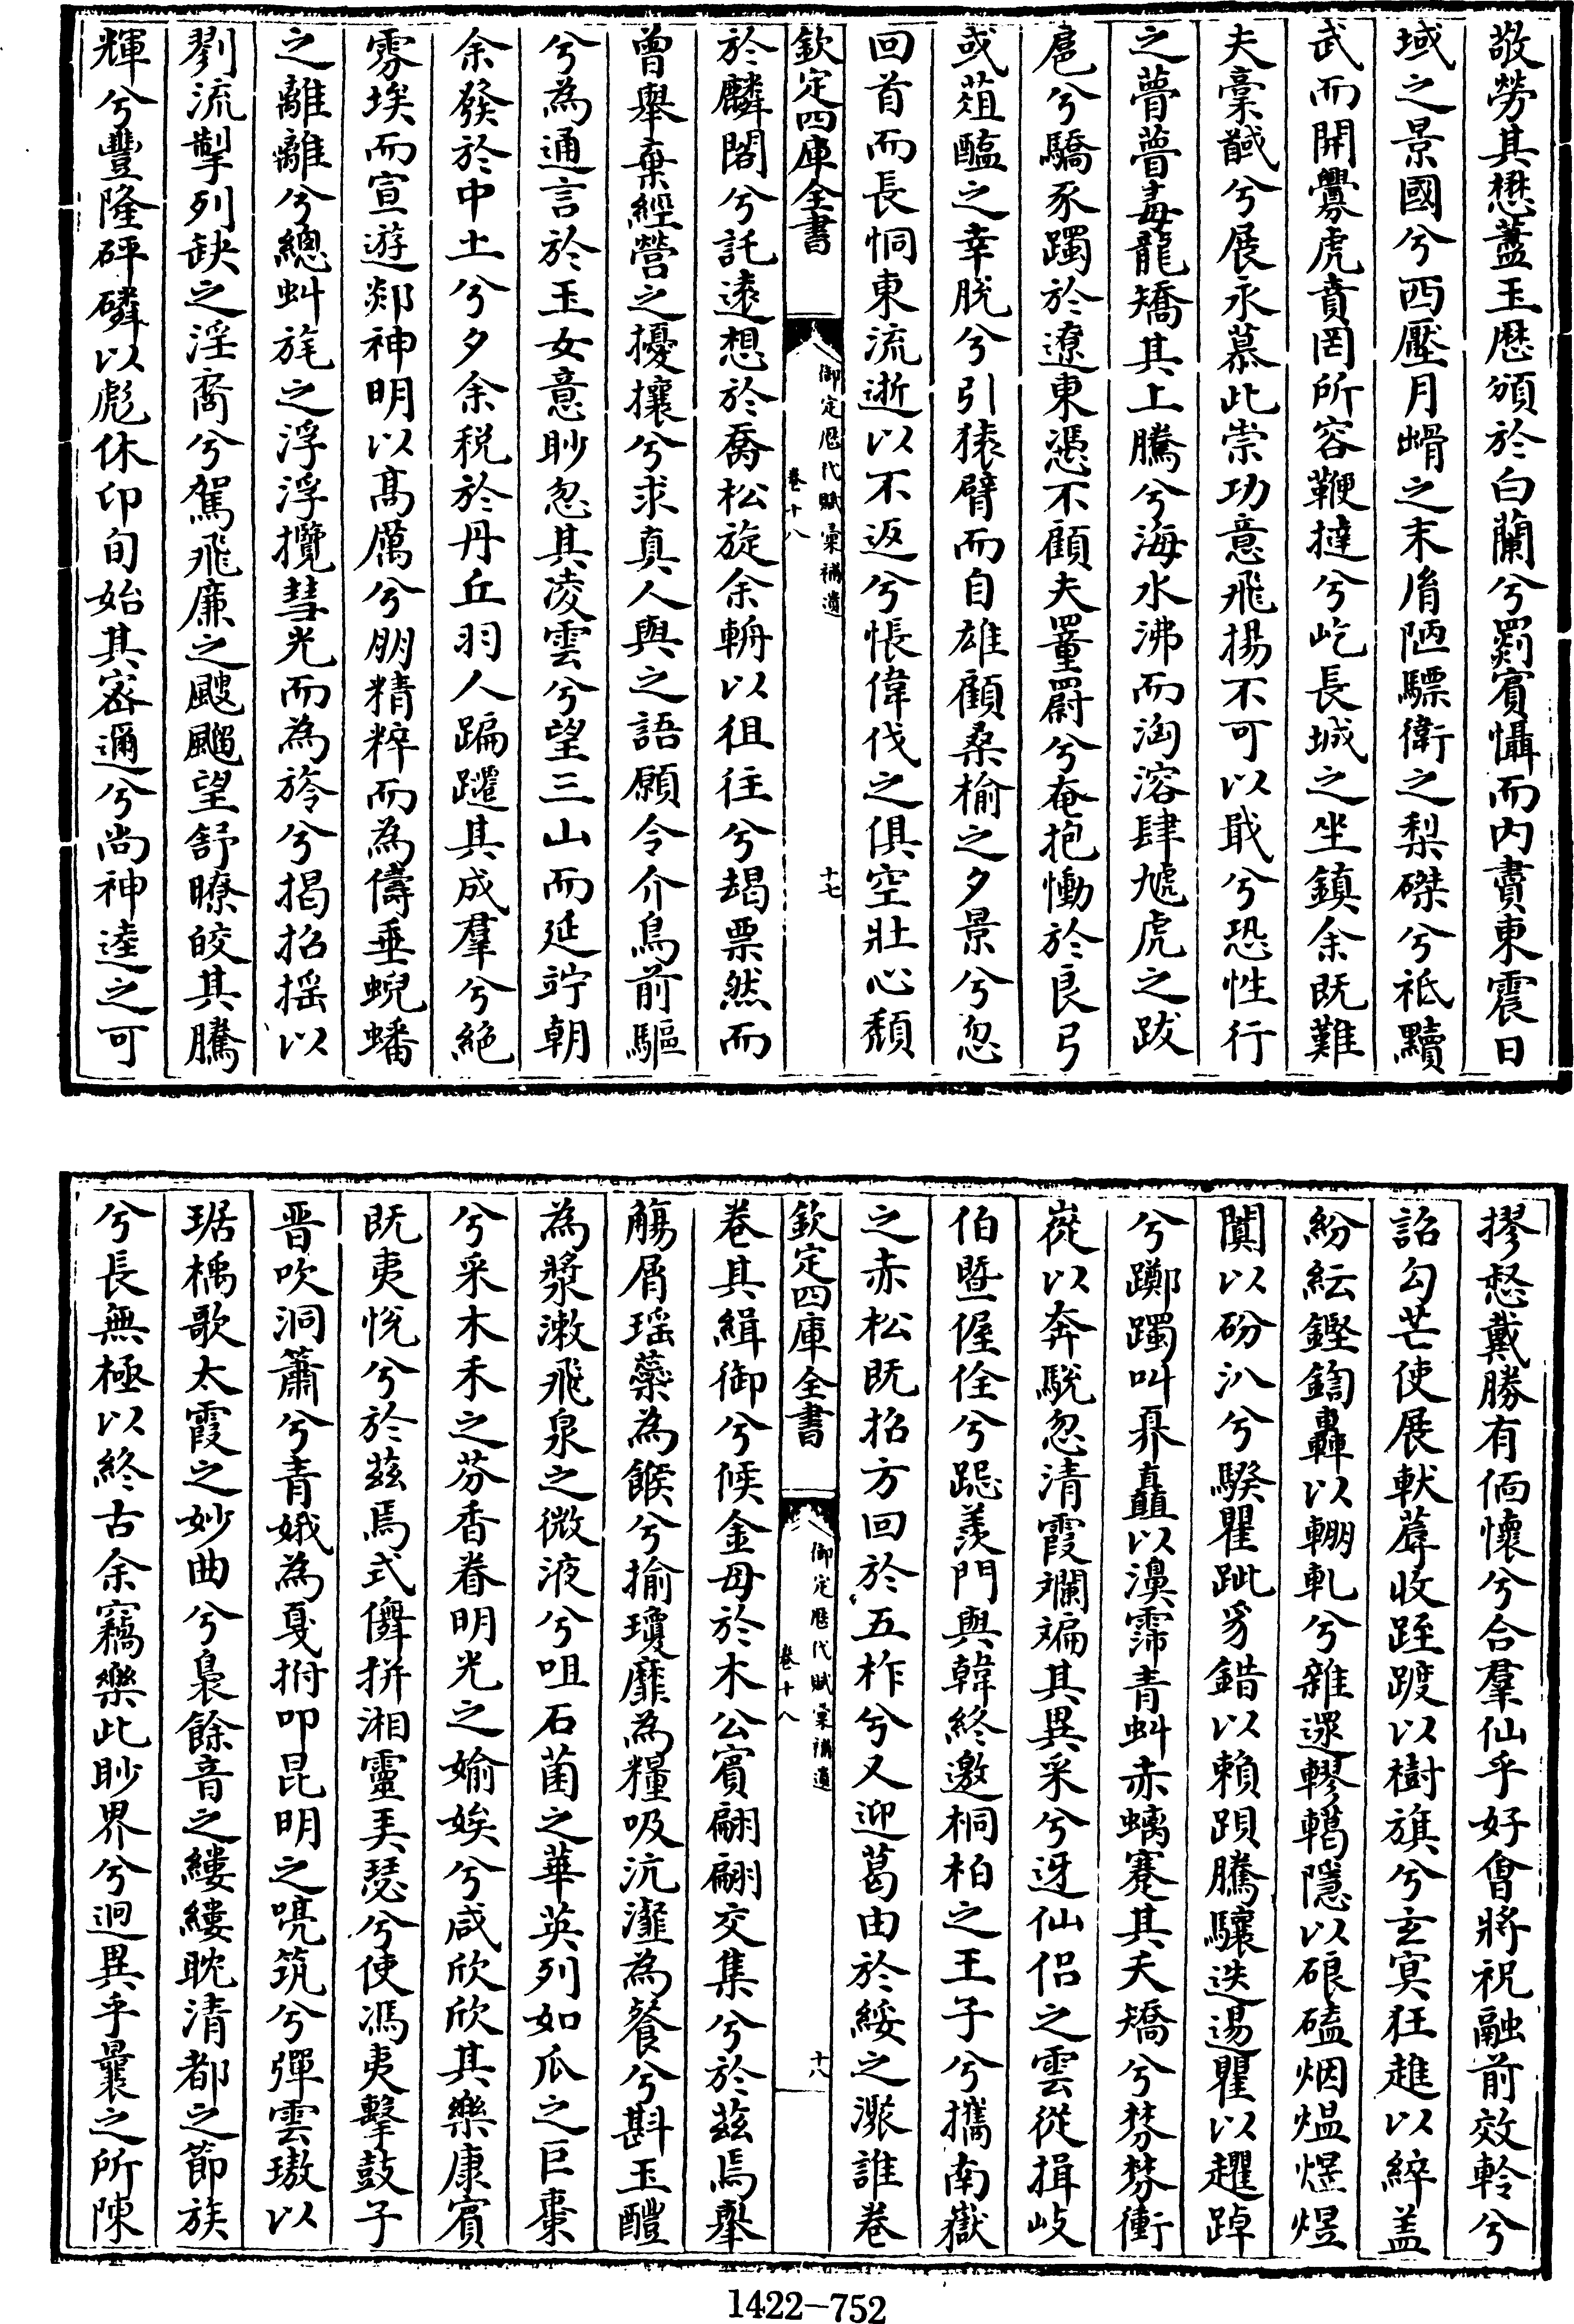 敬勞其懋蓋玉厯頒於白蘭兮罽賓懾而內賮東震日
域之景國兮西壓月㟯之末㡿陋驃衛之梨磔兮祗黷
武而開釁虎賁罔所容鞭撻兮屹長城之坐鎮余既難
夫稾馘兮展永慕此崇功意飛揚不可以戢兮恐性行
之瞢瞢毒龍矯其上騰兮海水沸而洶溶肆虓虎之跋
扈兮驕豕躅於遼東憑不顧夫罿罻兮奄抱慟於良弓
或葅醢之幸脫兮引猿臂而自雄顧桑榆之夕景兮忽
回首而長恫東流逝以不返兮悵偉伐之俱空壯心頹
欽定四庫全書
御定厯代賦彚補遺
卷十八
十七
於麟閣兮託遠想於喬松旋余輈以徂往兮朅票然而
曾舉棄經營之擾攘兮求真人與之語願令介鳥前驅
兮為通言於玉女意眇忽其凌雲兮望三山而延竚朝
余發於中土兮夕余稅於丹丘羽人蹁躚其成羣兮絶
雰埃而宣遊郯神明以高厲兮朋精粹而為儔垂蜺蟠
之離離兮總虯旄之浮浮攬彗光而為旍兮揭招搖以
劉流掣列缺之淫裔兮駕飛廉之颼飀望舒暸皎其騰
輝兮豐隆砰磷以彪休印旬始其宻邇兮尚神逵之可
摎惄戴勝有愐懷兮合羣仙乎好會將祝融前效軨兮
詔勾芒使展軑蓐收跮踱以樹旗兮玄冥狂趡以綷盖
紛紜鏗鍧轟以輣軋兮雜遝轇輵隱以硠磕烟熅煜煜
闐以砏汃兮騤瞿跐豸錯以賴跟騰驤迭逿瞿以趯踔
兮躑躅叫奡驫以濞霈青虯赤螭蹇其夭矯兮棼棼衝
嵸以奔駾忽清霞斕斒其異采兮迓仙侶之雲從揖岐
伯暨偓佺兮跽羨門與韓終邀桐柏之王子兮攜南嶽
之赤松既招方回於五柞兮又迎葛由於綏之濉誰卷
欽定四庫全書
御定厯代賦彚補遺
卷十八
十八
卷其緝御兮候金母於木公賓翩翩交集兮於茲焉舉
觴屑瑶蘂為餱兮揄瓊靡為糧吸沆瀣為餐兮斟玉醴
為漿漱飛泉之微液兮咀石菌之華英列如瓜之巨棗
兮采木禾之芬香眷明光之婾娭兮咸欣欣其樂康賓
既夷悅兮於茲焉式儛拼湘靈弄瑟兮使馮夷擊鼓子
晋吹洞簫兮青娥為戛拊叩昆明之喨筑兮彈雲璈以
琚楀歌太霞之妙曲兮裊餘音之縷縷眈清都之節族
兮長無極以終古余竊樂此眇界兮迥異乎曩之所陳
1422-752